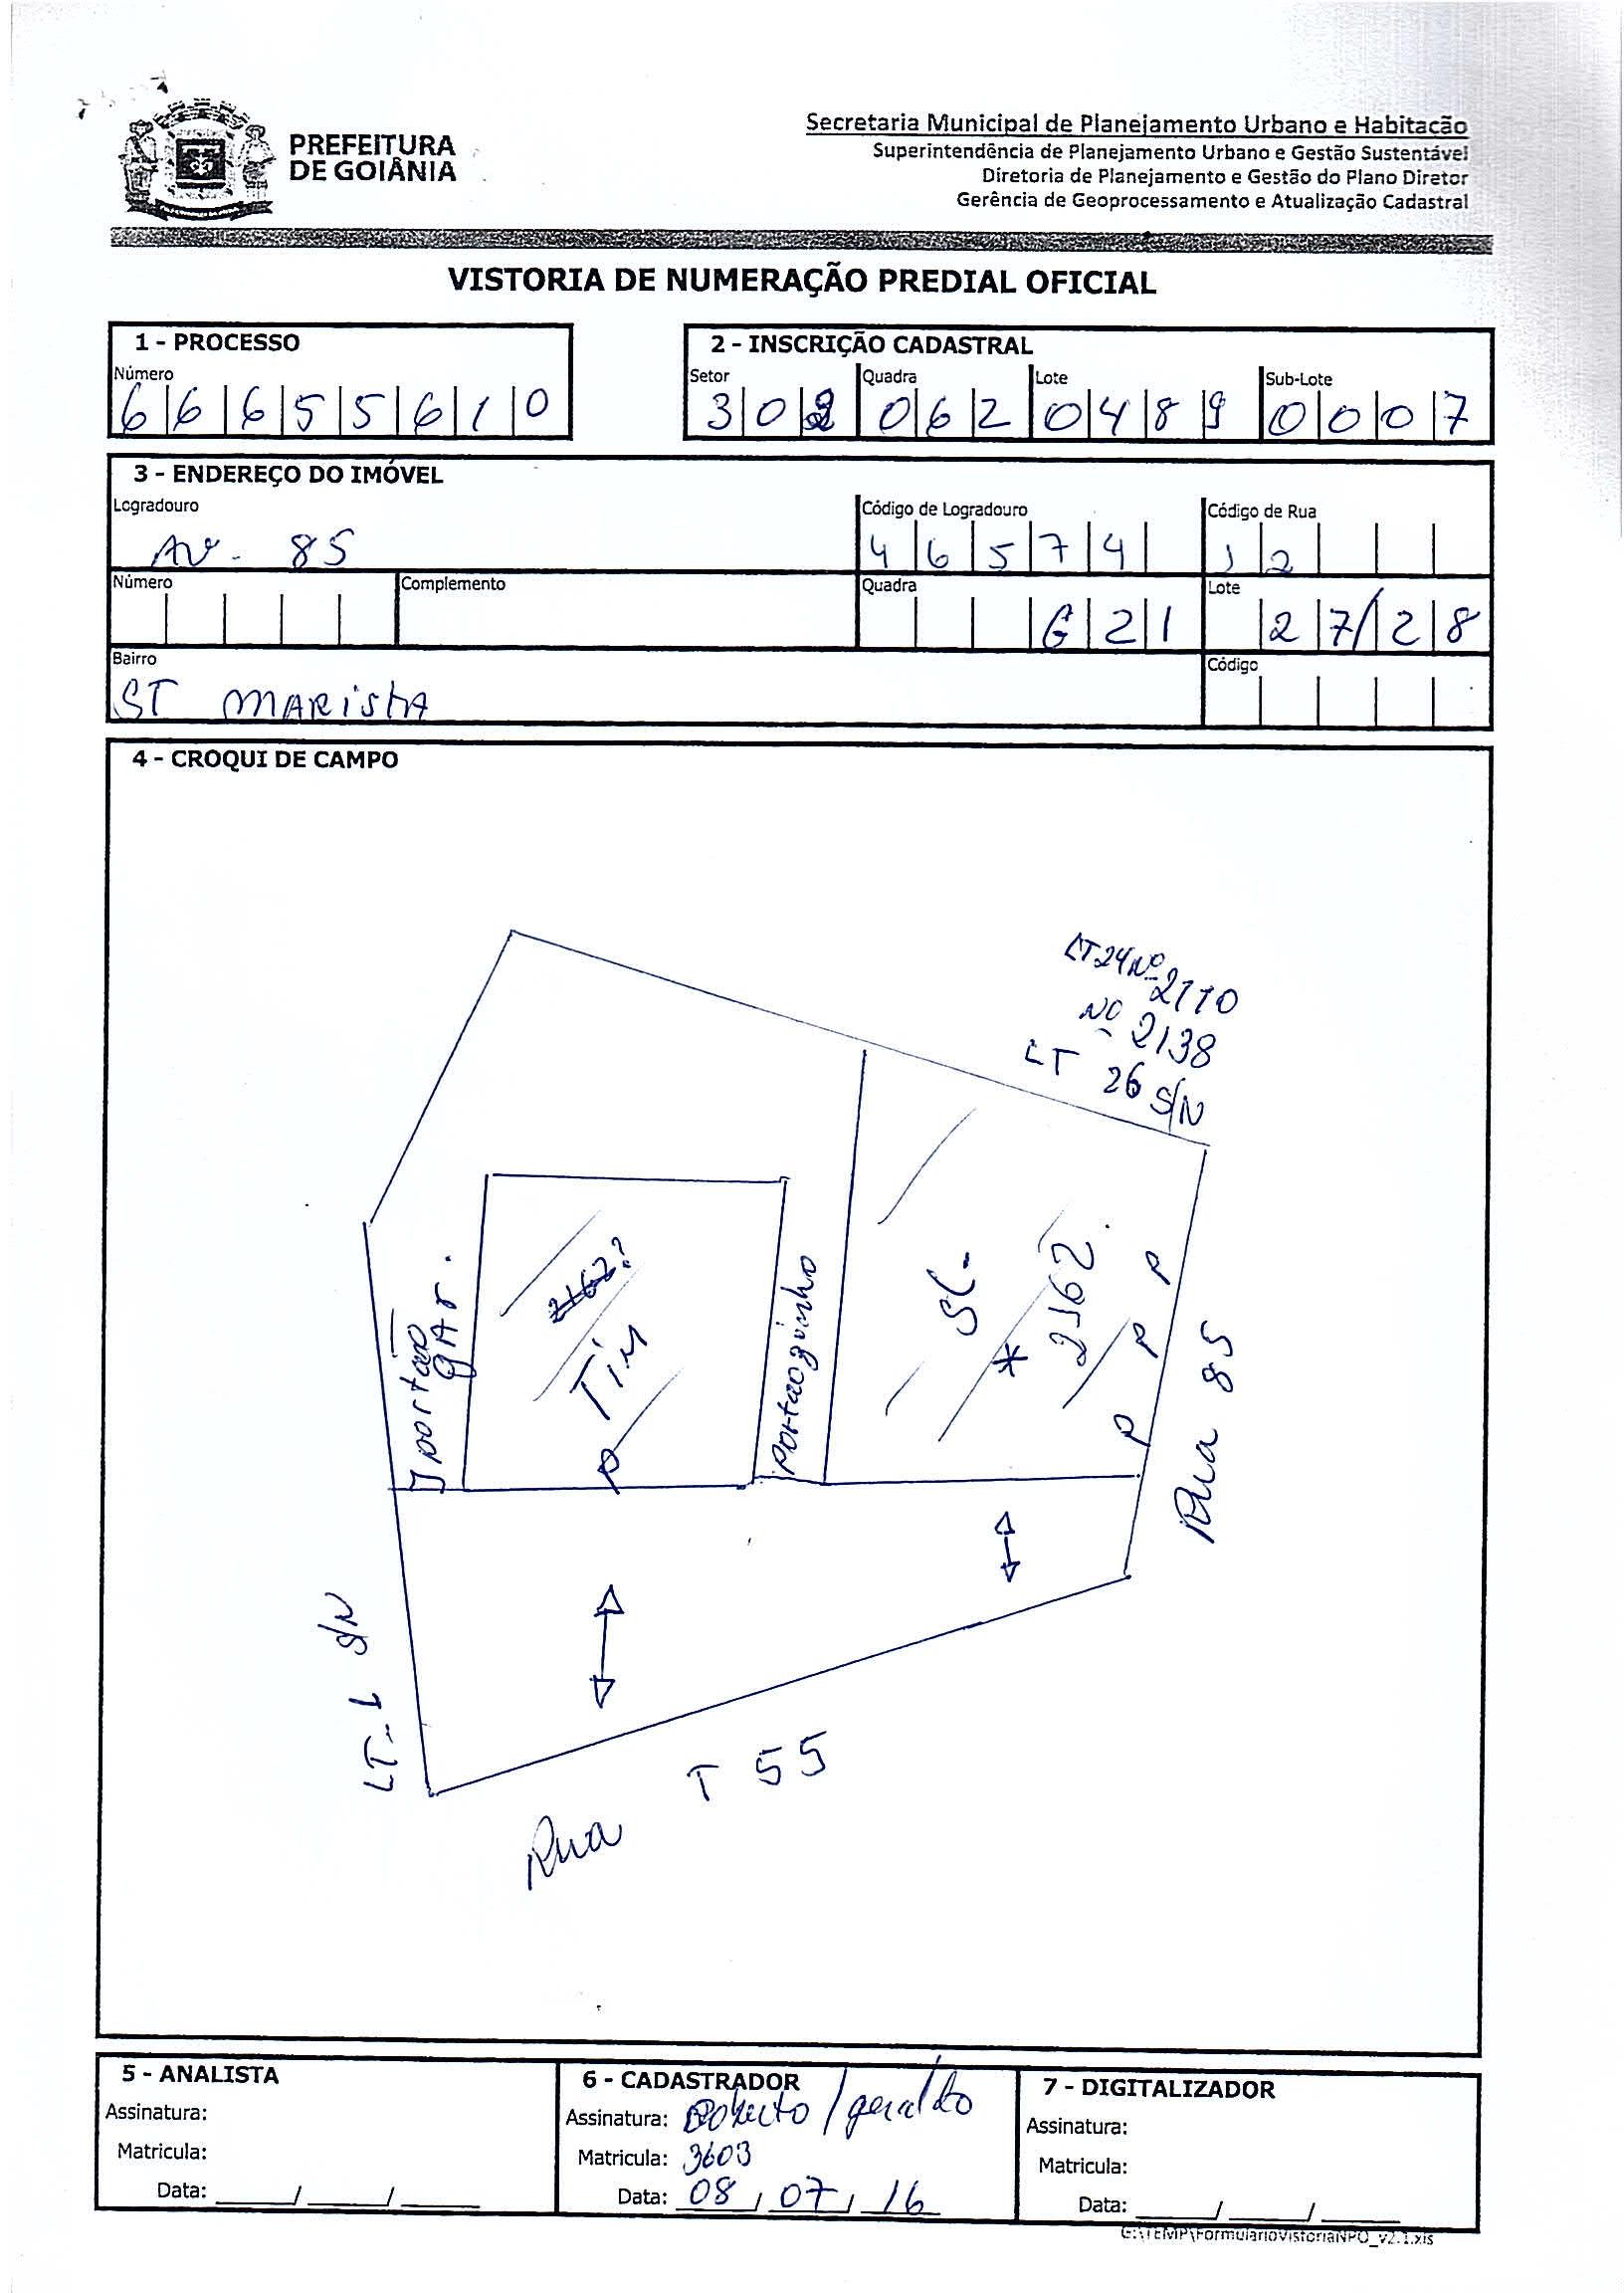 PREFEITURA
DE GOIÂNIA
Secretaria Municipal de Planejamento Urbano e Habitação
Superintendência de Planejamento Urbano e Gestão Sustentável
Diretoria de Planejamento e Gestão do Plano Diretor
Gerência de Geoprocessamento e Atualização Cadastral
VISTORIA DE NUMERAÇÃO PREDIAL OFICIAL
1 - PROCESSO
Número
66655610
2 - INSCRIÇÃO CADASTRAL
Setor Quadra Lote Sub-Lote
302 062 0489 0007
3 - ENDEREÇO DO IMÓVEL
Logradouro Código de Logradouro Código de Rua
AV - 85 46574 12
Número Complemento Quadra Lote
G21 27/28
Bairro Código
ST MARISTA
4 - CROQUI DE CAMPO
LT 24 Nº 2110
Nº 2138
LT 26 S/N
portão
gAr.
2162?
Tim
P
Portaozinho
SL-
* 2162.
P P P
Rua 85
LT-1 S/N
Rua T 55
5 - ANALISTA
Assinatura:
Matricula:
Data: ____/____/____
6 - CADASTRADOR
Assinatura: Roberto / geraldo
Matricula: 3603
Data: 08 / 07 / 16
7 - DIGITALIZADOR
Assinatura:
Matricula:
Data: ____/____/____
G:\TEMP\FormularioVistoriaNPO_v2.1.xls